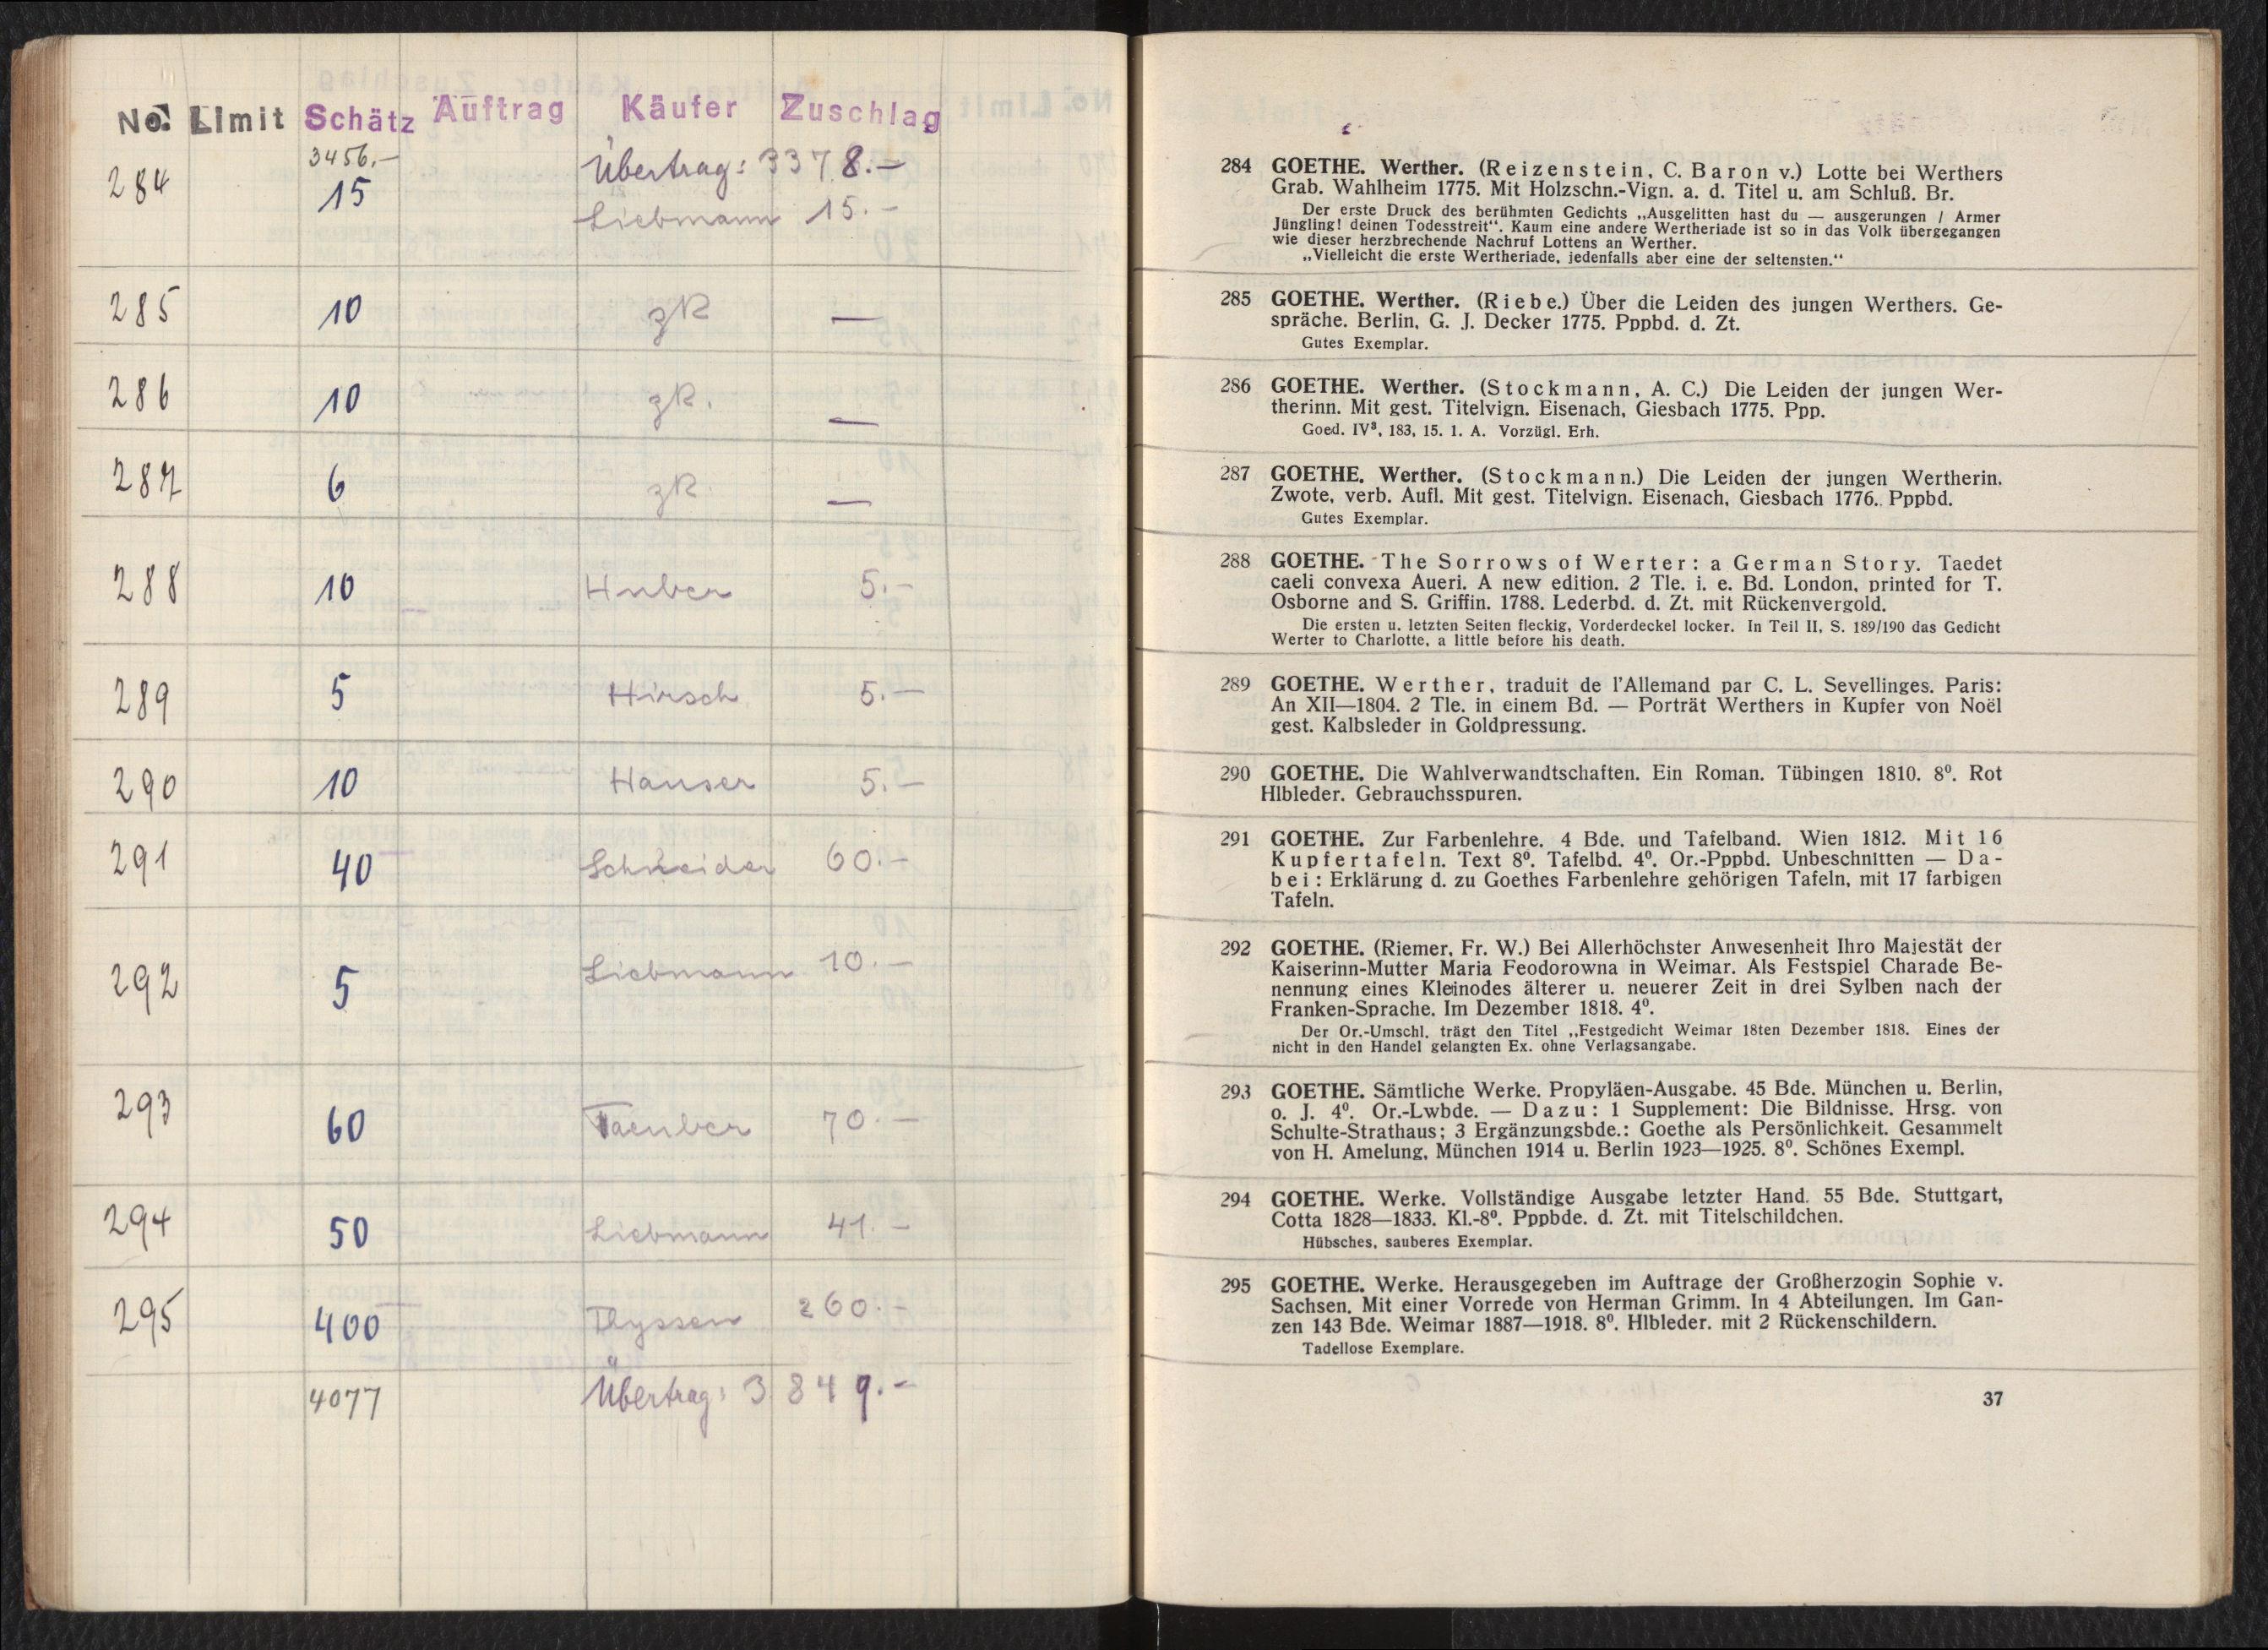 No. Limit Schätz Auftrag Käufer Zuschlag
3456.– Übertrag: 3378.–
284 15 Liebmann 15.–
285 10 zR —
286 10 zR. —
287 6 zR. —
288 10 Huber 5.–
289 5 Hirsch 5.–
290 10 Hauser 5.–
291 40 Schneider 60.–
292 5 Liebmann 10.–
293 60 Taeuber 70.–
294 50 Liebmann 41.–
295 400 Thyssen 260.–
4077 Übertrag: 3849.–
284 GOETHE. Werther. (Reizenstein, C. Baron v.) Lotte bei Werthers
Grab. Wahlheim 1775. Mit Holzschn.-Vign. a. d. Titel u. am Schluß. Br.
Der erste Druck des berühmten Gedichts „Ausgelitten hast du — ausgerungen / Armer
Jüngling! deinen Todesstreit“. Kaum eine andere Wertheriade ist so in das Volk übergegangen
wie dieser herzbrechende Nachruf Lottens an Werther.
„Vielleicht die erste Wertheriade, jedenfalls aber eine der seltensten.“
285 GOETHE. Werther. (Riebe.) Über die Leiden des jungen Werthers. Ge-
spräche. Berlin, G. J. Decker 1775. Pppbd. d. Zt.
Gutes Exemplar.
286 GOETHE. Werther. (Stockmann, A. C.) Die Leiden der jungen Wer-
therinn. Mit gest. Titelvign. Eisenach, Giesbach 1775. Ppp.
Goed. IV³, 183, 15. 1. A. Vorzügl. Erh.
287 GOETHE. Werther. (Stockmann.) Die Leiden der jungen Wertherin.
Zwote, verb. Aufl. Mit gest. Titelvign. Eisenach, Giesbach 1776. Pppbd.
Gutes Exemplar.
288 GOETHE. The Sorrows of Werter: a German Story. Taedet
caeli convexa Aueri. A new edition. 2 Tle. i. e. Bd. London, printed for T.
Osborne and S. Griffin. 1788. Lederbd. d. Zt. mit Rückenvergold.
Die ersten u. letzten Seiten fleckig, Vorderdeckel locker. In Teil II, S. 189/190 das Gedicht
Werter to Charlotte, a little before his death.
289 GOETHE. Werther, traduit de l'Allemand par C. L. Sevellinges. Paris:
An XII—1804. 2 Tle. in einem Bd. — Porträt Werthers in Kupfer von Noël
gest. Kalbsleder in Goldpressung.
290 GOETHE. Die Wahlverwandtschaften. Ein Roman. Tübingen 1810. 8⁰. Rot
Hlbleder. Gebrauchsspuren.
291 GOETHE. Zur Farbenlehre. 4 Bde. und Tafelband. Wien 1812. Mit 16
Kupfertafeln. Text 8⁰. Tafelbd. 4⁰. Or.-Pppbd. Unbeschnitten — Da-
bei: Erklärung d. zu Goethes Farbenlehre gehörigen Tafeln, mit 17 farbigen
Tafeln.
292 GOETHE. (Riemer, Fr. W.) Bei Allerhöchster Anwesenheit Ihro Majestät der
Kaiserinn-Mutter Maria Feodorowna in Weimar. Als Festspiel Charade Be-
nennung eines Kleinodes älterer u. neuerer Zeit in drei Sylben nach der
Franken-Sprache. Im Dezember 1818. 4⁰.
Der Or.-Umschl. trägt den Titel „Festgedicht Weimar 18ten Dezember 1818. Eines der
nicht in den Handel gelangten Ex. ohne Verlagsangabe.
293 GOETHE. Sämtliche Werke. Propyläen-Ausgabe. 45 Bde. München u. Berlin,
o. J. 4⁰. Or.-Lwbde. — Dazu: 1 Supplement: Die Bildnisse. Hrsg. von
Schulte-Strathaus; 3 Ergänzungsbde.: Goethe als Persönlichkeit. Gesammelt
von H. Amelung, München 1914 u. Berlin 1923—1925. 8⁰. Schönes Exempl.
294 GOETHE. Werke. Vollständige Ausgabe letzter Hand. 55 Bde. Stuttgart,
Cotta 1828—1833. Kl.-8⁰. Pppbde. d. Zt. mit Titelschildchen.
Hübsches, sauberes Exemplar.
295 GOETHE. Werke. Herausgegeben im Auftrage der Großherzogin Sophie v.
Sachsen. Mit einer Vorrede von Herman Grimm. In 4 Abteilungen. Im Gan-
zen 143 Bde. Weimar 1887—1918. 8⁰. Hlbleder. mit 2 Rückenschildern.
Tadellose Exemplare.
37